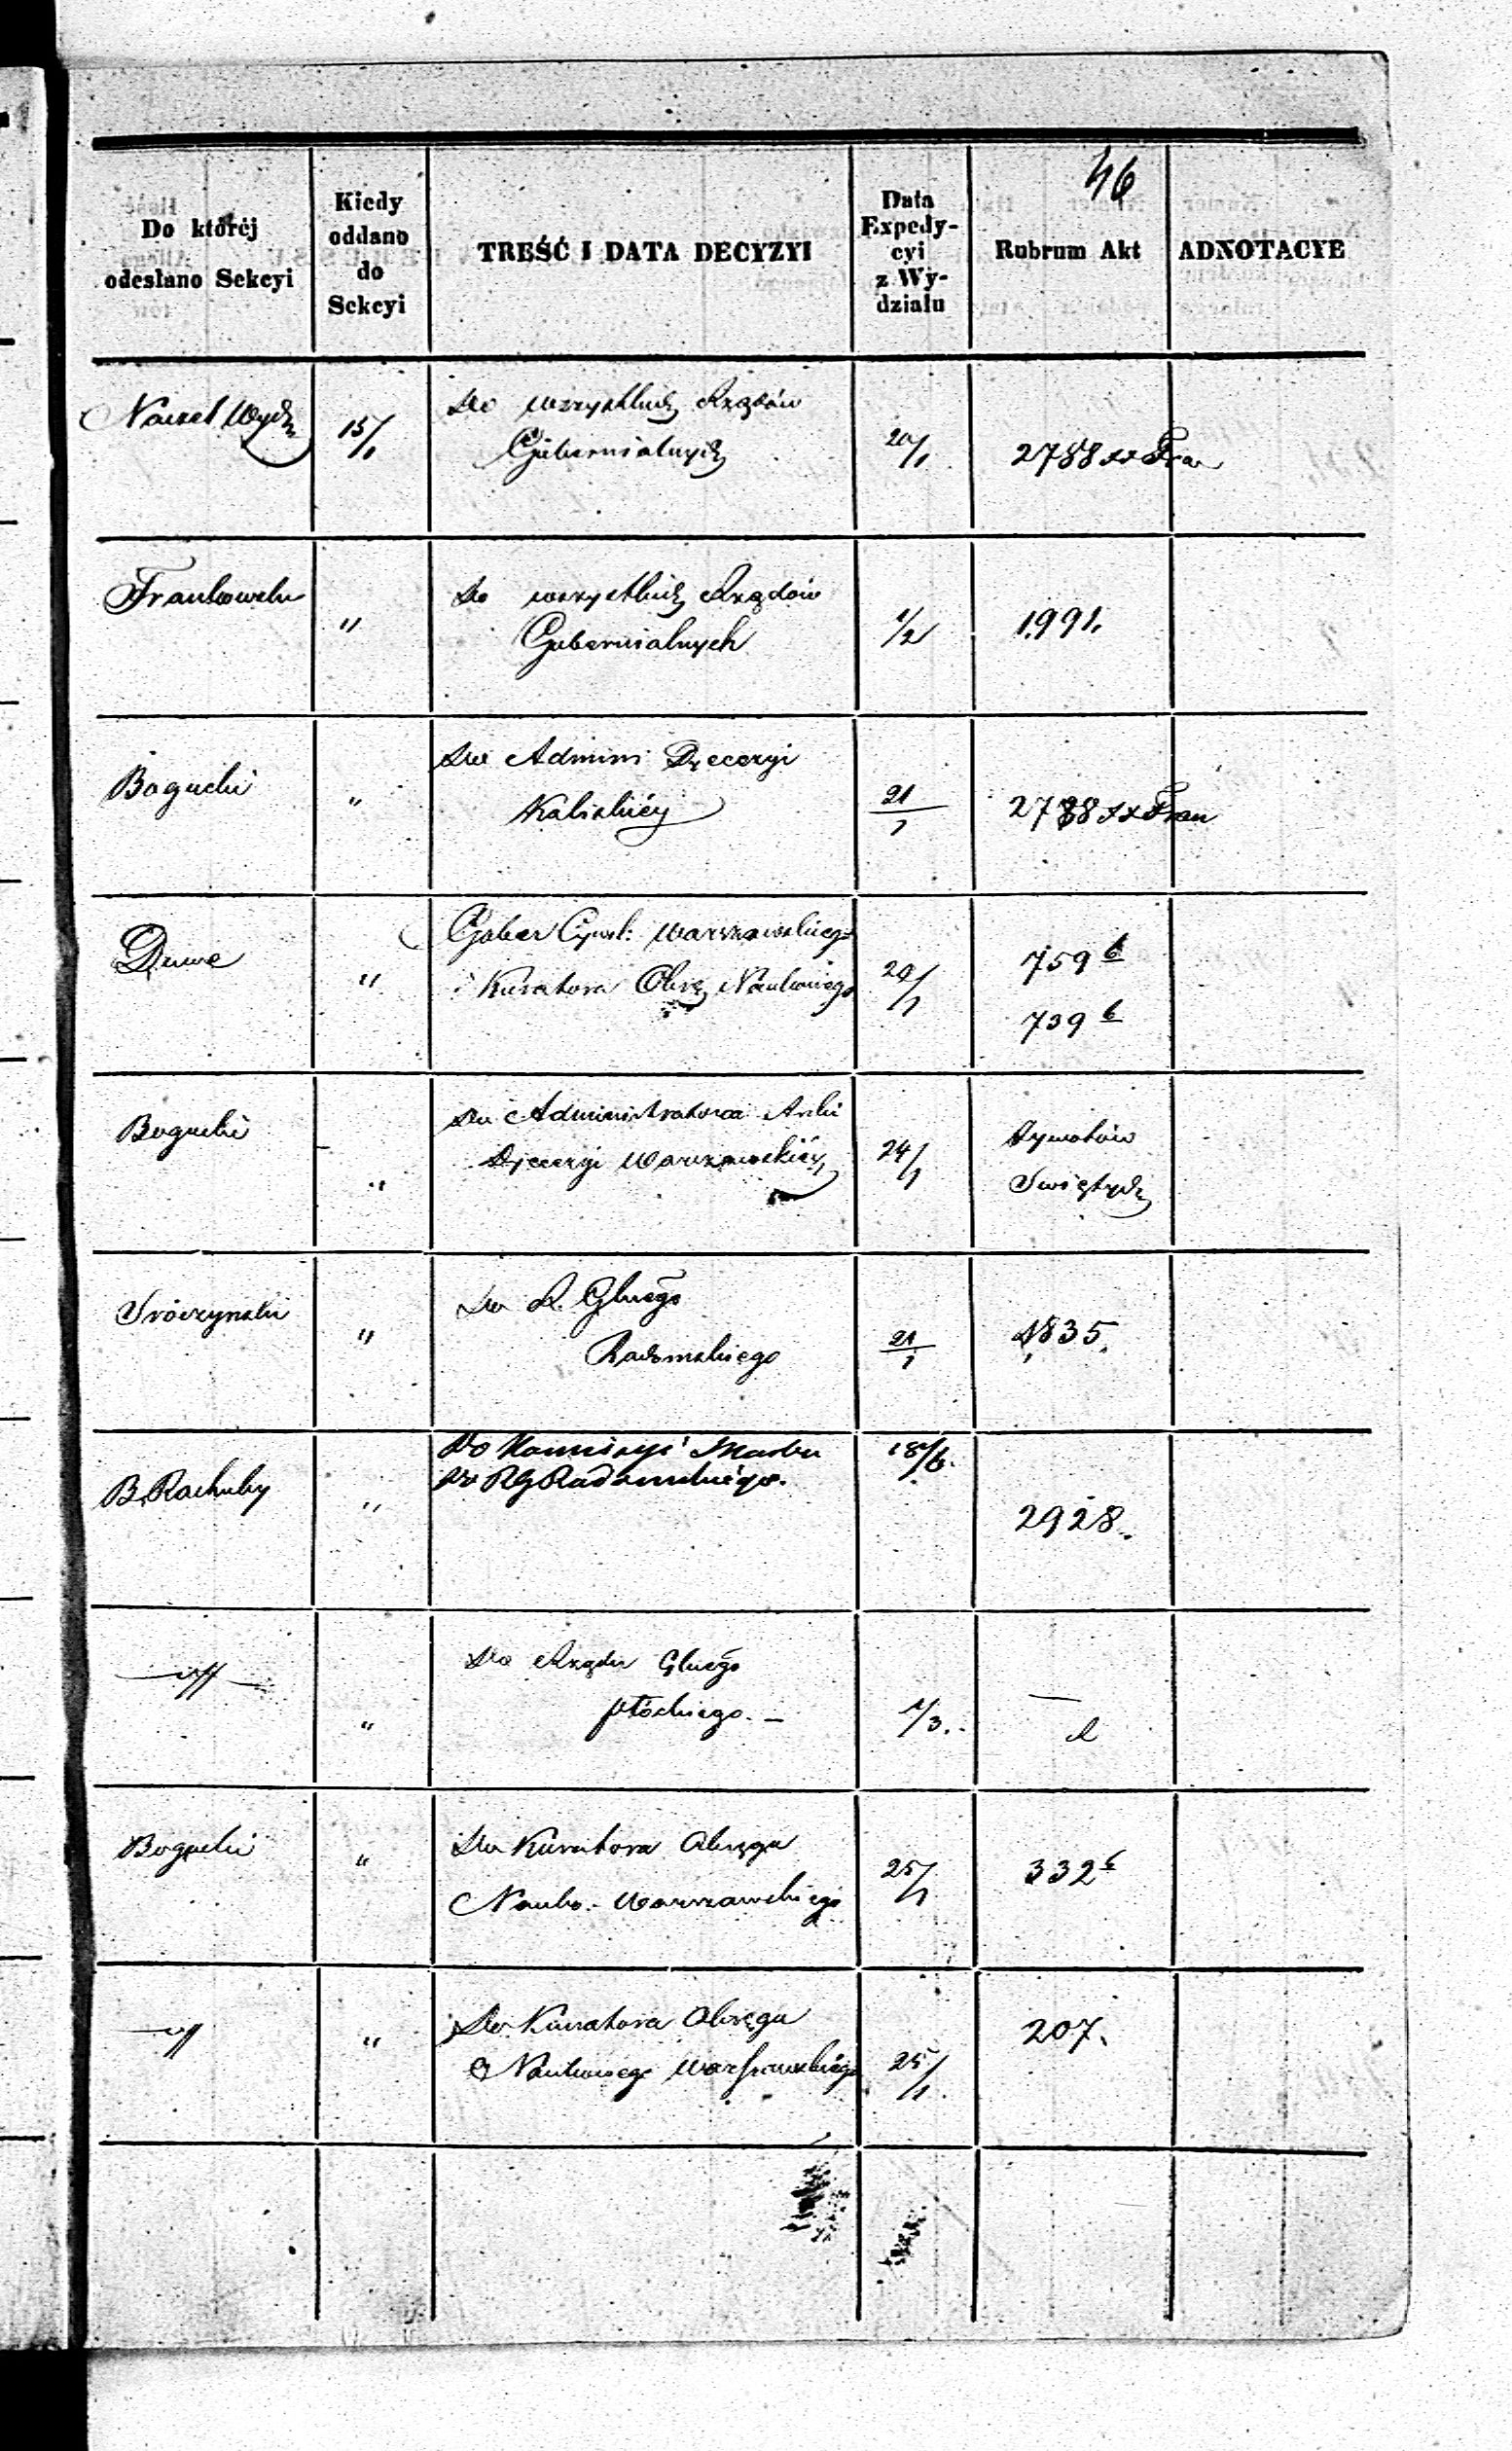 46
Do którćj odesłano Sekcyi
Kiedy oddano do Sekcyi
TREŚĆ I DATA DECYZYI
Data Expedycyi z Wydziału
Rubrum Akt
ADNOTACYE
Naczel Wydz
15/1
Do wszystkich Rządów
Gubernialnych
20/1
2788
Frankowski
"
Do wszystkich Rządów
Gubernialnych
1/2
1991.
Bogucki
"
Do Admini Dyecezyi
Kaliskiéy
21/1
2788
Duwe
"
Guber Cywil: Warszawskiego
i Kuratora Okrę Naukowego
20/1
759 b
739 b
Bogucki
"
Do Administratora Archi
Dyecezyi Warszawskiéy
24/1
Żywotów
Świętych
Sroczyński
"
Do R. Glnego
Radomskiego
21/1
1835.
B. Rachuby
"
Do Kommissyi Skarbu
Do RG Radomskiego.
18/6.
2928.
"
Do Rządu Glnego
Płockiego. —
1/3.
—
Bogucki
"
Do Kuratora Okręgu
Nauko.- Warszawskiego
25/1
332
"
Do Kuratora Okręgu
Naukowego Warszawskiego
25/1
207.